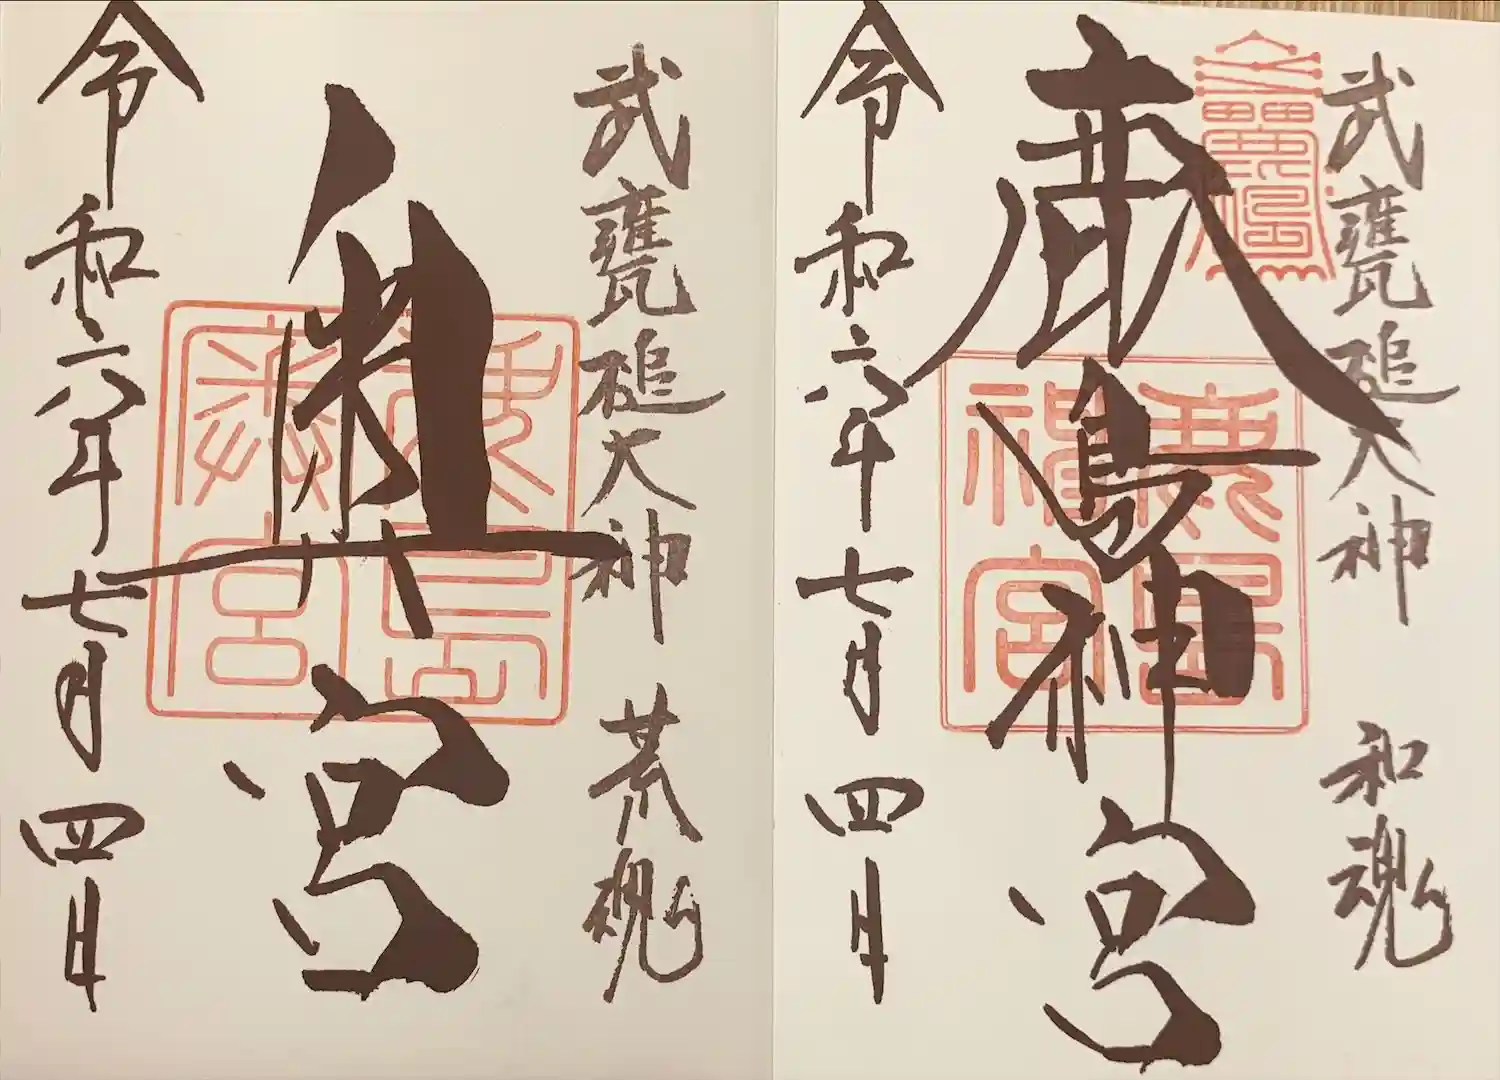 武甕槌大神 和魂
鹿島神宮
鹿島
神宮
令和六年七月四日
武甕槌大神 荒魂
奥宮
鹿島
奥宮
令和六年七月四日